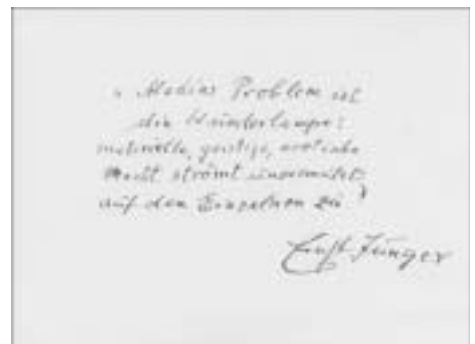 " Aladins Problem ist
die Wunderlampe:
materielle, geistige, erotische
Macht strömt unvermutet
auf den Einzelnen zu "
Ernst Jünger